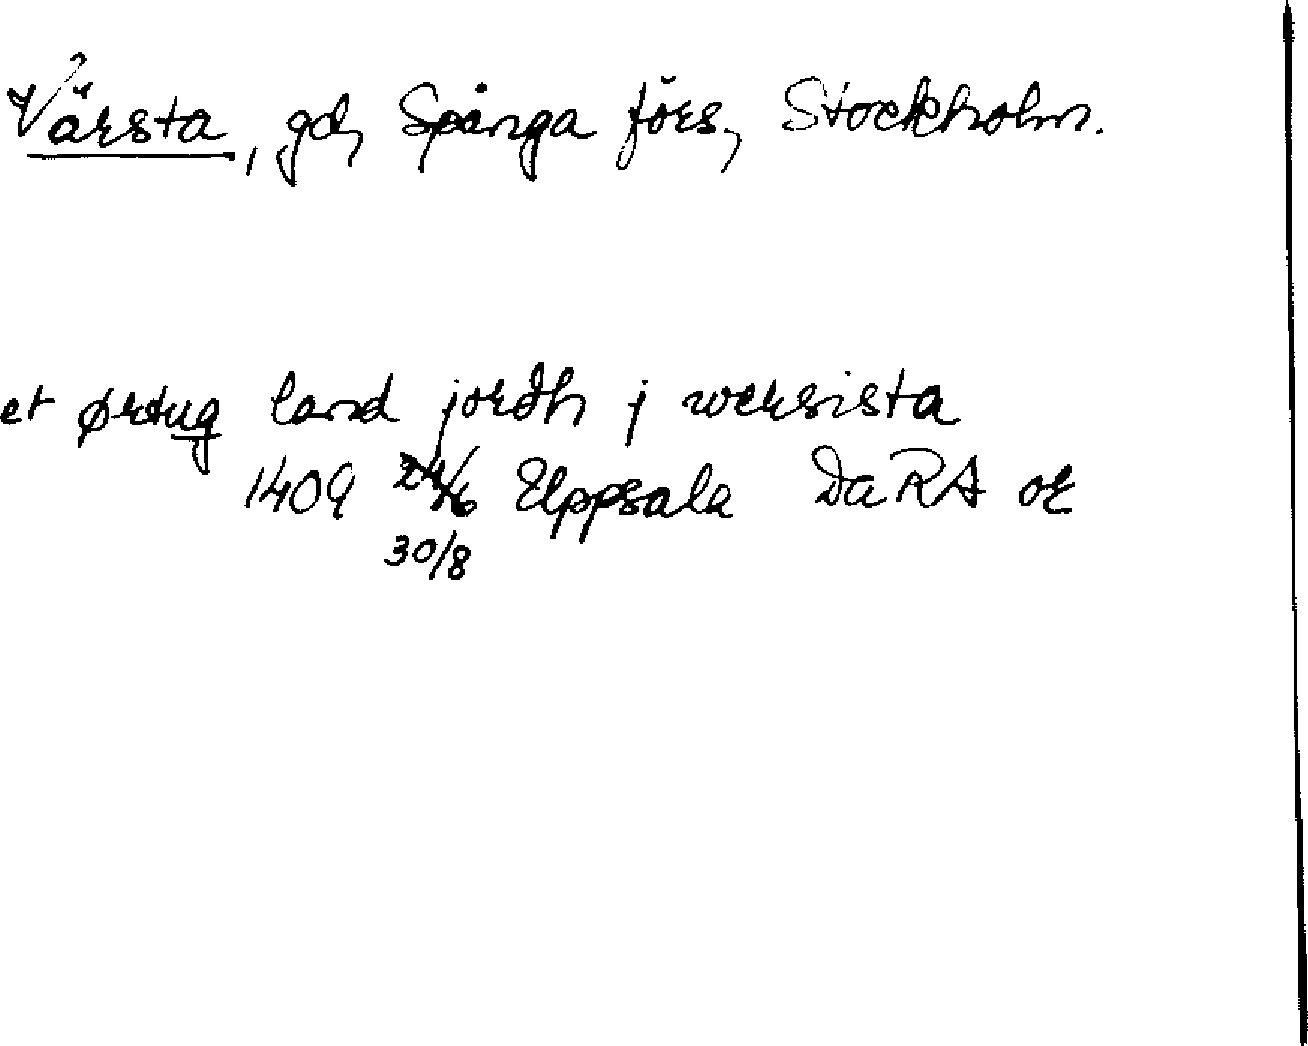 Värsta, gd, Spånga förs, Stockholm.
et ørtug land jordh j wersista
1409 24/6 Uppsala DaRA or
30/8